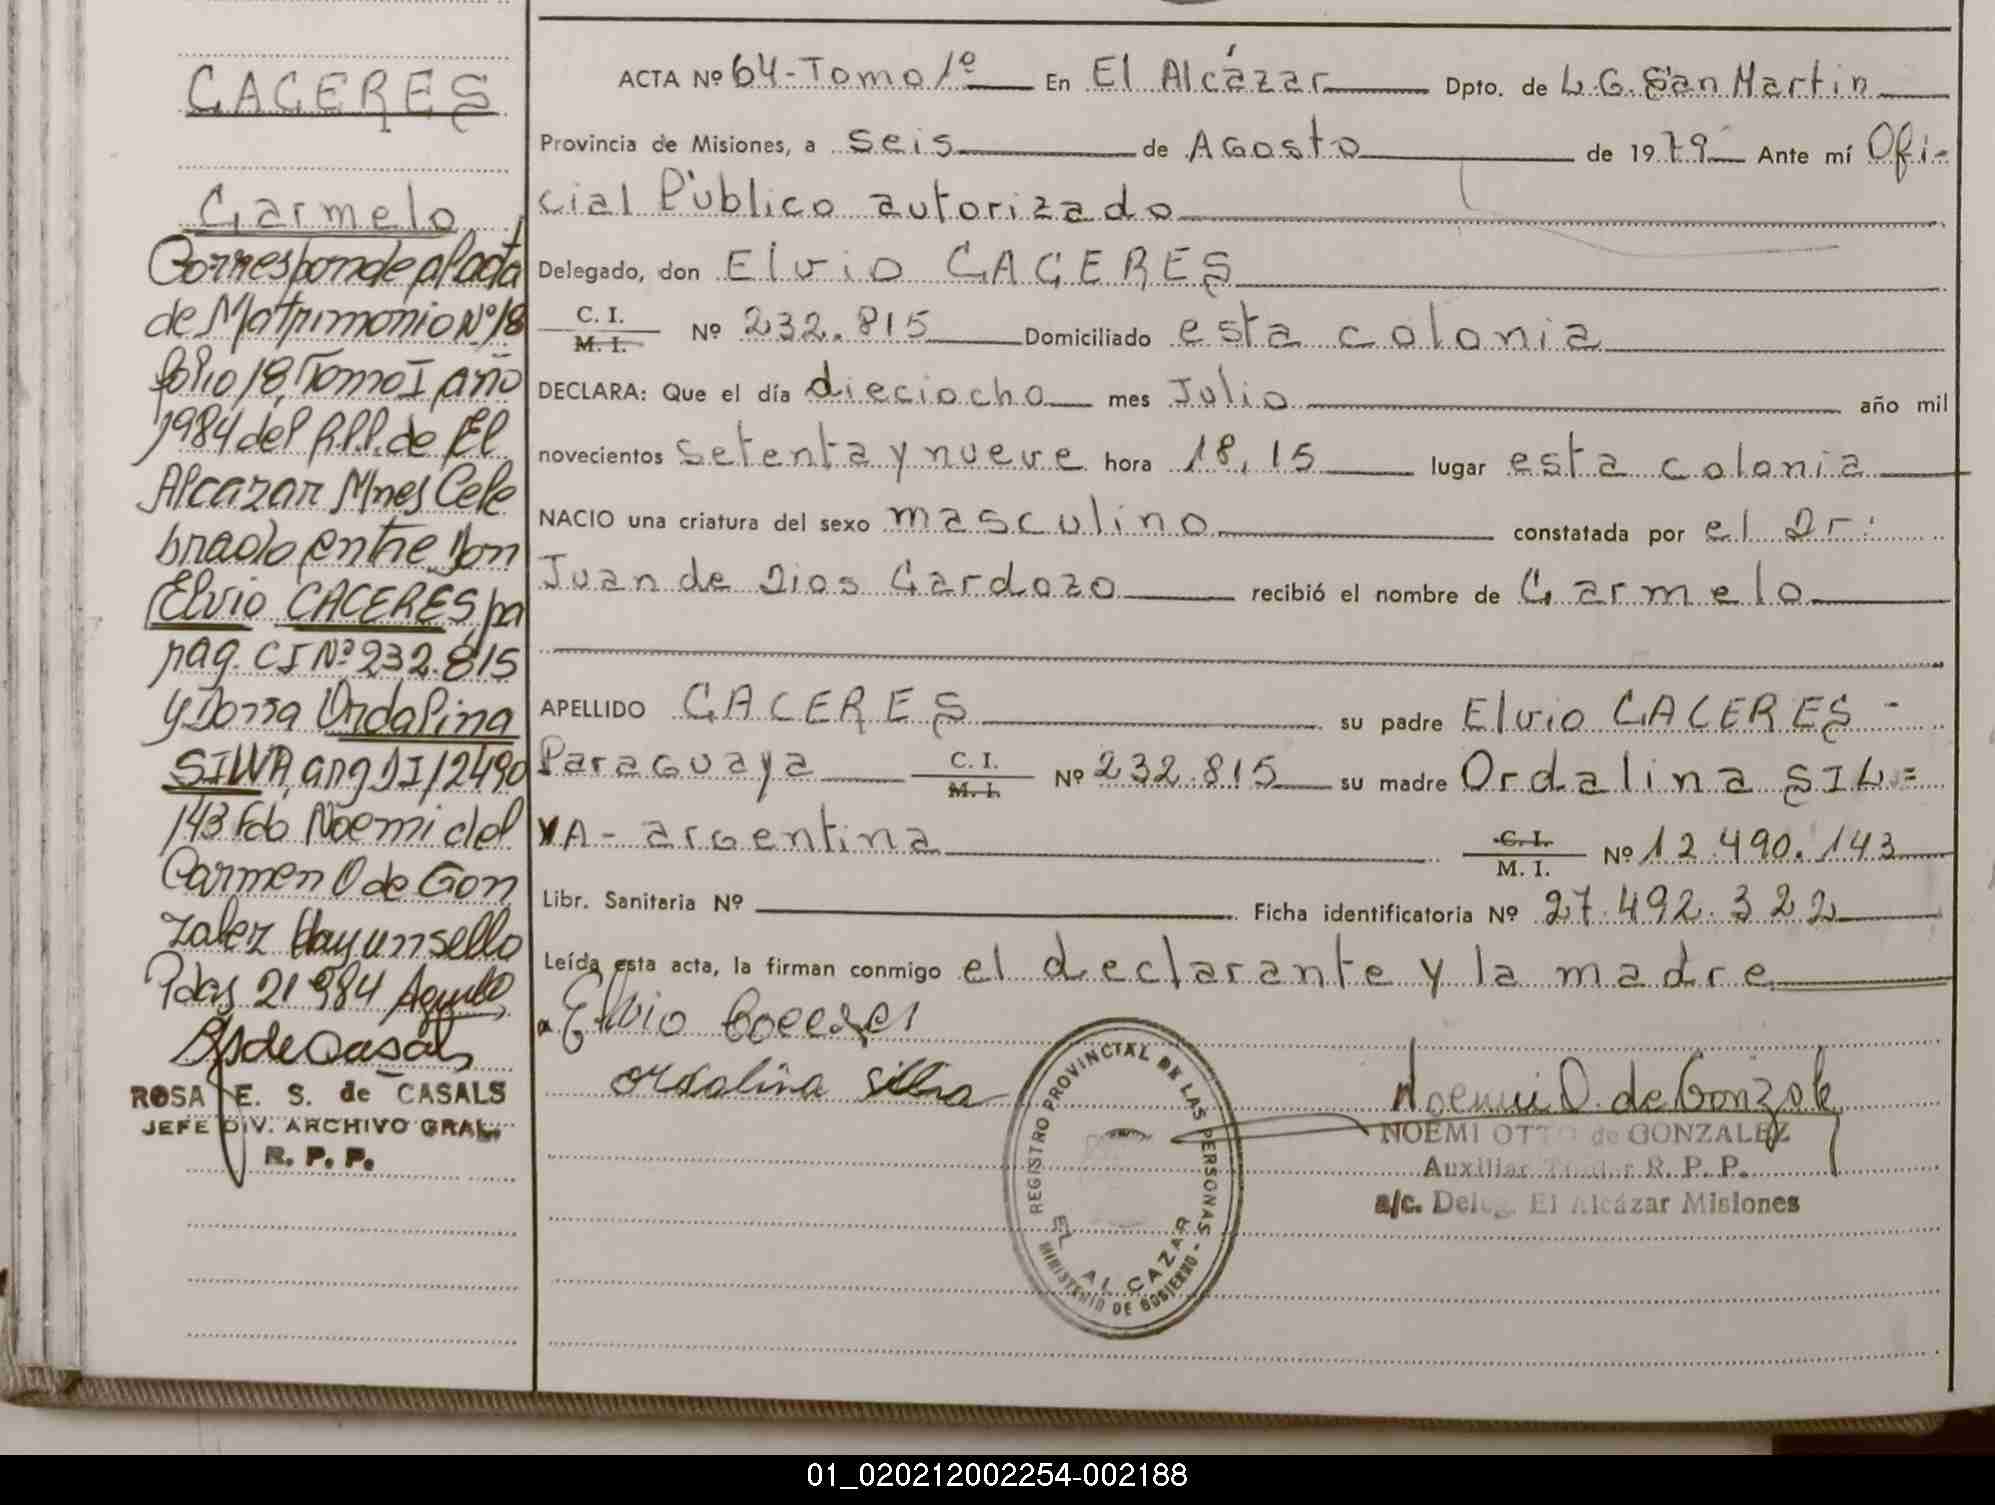 CACERES
Carmelo
Corresponde al acta
de Matrimonio Nº 18
folio 18, Tomo I año
1984 del R.P.P. de El
Alcazar Mnes Cele
brado entre Don
Elvio CACERES, pa
rag. C I Nº 232.815
y Doña Ordalina
SILVA, arg D I 12490
143 Fdo Noemi del
Carmen O de Gon
zalez Hay un sello
Pdas 21 984 Agosto
ROSA E. S. de CASALS
JEFE DIV. ARCHIVO GRAL.
R. P. P.
ACTA Nº 64-Tomo 1º En El Alcázar Dpto. de L.G. San Martin
Provincia de Misiones, a seis de Agosto de 1979 Ante mí Ofi-
cial Público autorizado
Delegado, don Elvio CACERES
C. I.
M. I. Nº 232.815 Domiciliado esta colonia
DECLARA: Que el día dieciocho mes Julio año mil
novecientos setenta y nueve hora 18,15 lugar esta colonia
NACIO una criatura del sexo masculino constatada por el Dr:
Juan de Dios Cardozo recibió el nombre de Carmelo
APELLIDO CACERES su padre Elvio CACERES -
Paraguaya C. I.
M. I. Nº 232.815 su madre Ordalina SIL=
VA - argentina C. I.
M. I. Nº 12.490.143
Libr. Sanitaria Nº Ficha identificatoria Nº 27.492.322
Leída esta acta, la firman conmigo el declarante y la madre
Elvio Caceres
ordalina silva
Noemi O. de Gonzalez
NOEMI OTTO de GONZALEZ
Auxiliar Titular R. P. P.
a/c. Deleg. El Alcázar Misiones
REGISTRO PROVINCIAL DE LAS PERSONAS -
EL ALCAZAR
MINISTERIO DE GOBIERNO -
01_020212002254-002188